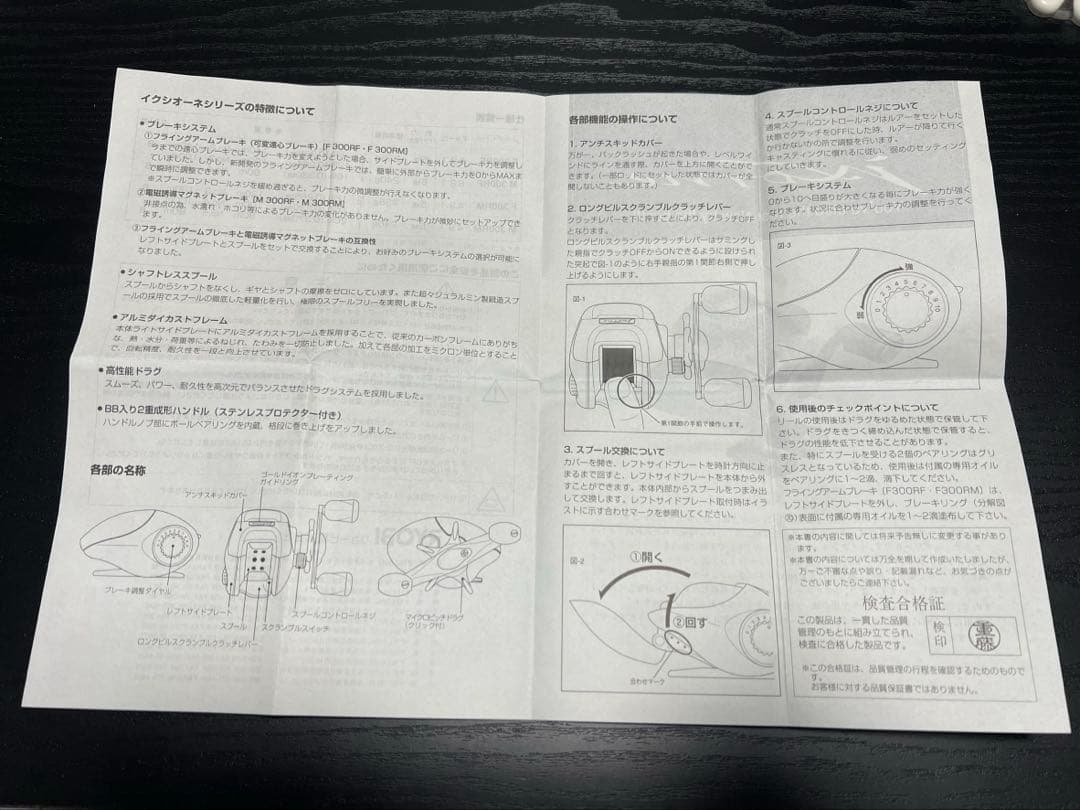 イクシオーネシリーズの特徴について
● ブレーキシステム
①フライングアームブレーキ（可変遠心ブレーキ）[F 300RF・F 300RM]
今までの遠心ブレーキでは、ブレーキ力を変えようとした場合、サイドプレートを外してブレーキ力を調整し
ていました。しかし、新開発のフライングアームブレーキでは、簡単に外部からブレーキ力を0からMAXま
で瞬時に調整できます。
※スプールコントロールネジを緩め過ぎると、ブレーキ力の微調整が行えなくなります。
②電磁誘導マグネットブレーキ [M 300RF・M 300RM]
非接点の為、水濡れ・ホコリ等によるブレーキ力の変化がありません。ブレーキ力が微妙にセットアップでき
ます。
③フライングアームブレーキと電磁誘導マグネットブレーキの互換性
レフトサイドプレートとスプールをセットで交換することにより、お好みのブレーキシステムの選択が可能に
なりました。
● シャフトレススプール
スプールからシャフトをなくし、ギヤとシャフトの摩擦をゼロにしています。また超々ジュラルミン製鍛造スプ
ールの採用でスプールの徹底した軽量化を行い、極限のスプールフリーを実現しました。
● アルミダイカストフレーム
本体ライトサイドプレートにアルミダイカストフレームを採用することで、従来のカーボンフレームにありがち
な、熱・水分・荷重等によるねじれ、たわみを一切防止しました。加えて各部の加工をミクロン単位とすること
で、回転精度、耐久性を一段と向上させています。
● 高性能ドラグ
スムーズ、パワー、耐久性を高次元でバランスさせたドラグシステムを採用しました。
● BB入り2重成形ハンドル（ステンレスプロテクター付き）
ハンドルノブ部にボールベアリングを内蔵、格段に巻き上げをアップしました。
各部の名称
ゴールドイオンプレーティング
ガイドリング
アンチスキッドカバー
ブレーキ調整ダイヤル
レフトサイドプレート
スプール
ロングピルスクランブルクラッチレバー
スクランブルスイッチ
スプールコントロールネジ
マイクロピッチドラグ
（クリック付）
各部機能の操作について
1. アンチスキッドカバー
万が一、バックラッシュが起きた場合や、レベルワイ
ンドにラインを通す際、カバーを上方に開くことがで
きます。（一部ロッドにセットした状態ではカバーが全
開しないこともあります。）
2. ロングピルスクランブルクラッチレバー
クラッチレバーを下に押すことにより、クラッチOFF
となります。
ロングピルスクランブルクラッチレバーはサミングし
た親指でクラッチOFFからONできるように設けられ
た突起で図-1のように右手親指の第1関節右側で押し
上げるようにします。
図-1
第1関節の手前で操作します。
3. スプール交換について
カバーを開き、レフトサイドプレートを時計方向に止
まるまで回すと、レフトサイドプレートを本体から外
すことができます。本体内部からスプールをつまみ出
して交換します。レフトサイドプレート取付時はイラ
ストに示す合わせマークを参照してください。
図-2
①開く
②回す
合わせマーク
4. スプールコントロールネジについて
通常スプールコントロールネジはルアーをセットした
状態でクラッチをOFFにした時、ルアーが降りて行く
か行かないかの所で調整を行います。
キャスティングに慣れるに従い、弱めのセッティング
にしていきます。
5. ブレーキシステム
0から10へ目盛りが大きくなる毎にブレーキ力が強く
なります。状況に合わせブレーキ力の調整を行ってく
ださい。
図-3
強
弱
0 1 2 3 4 5 6 7 8 9 10
6. 使用後のチェックポイントについて
リールの使用後はドラグをゆるめた状態で保管して下
さい。ドラグをきつく締め込んだ状態で保管すると、
ドラグの性能を低下させることがあります。
また、特にスプールを受ける2個のベアリングはグリ
スレスとなっているため、使用後は付属の専用オイル
をベアリングに1〜2滴、滴下してください。
フライングアームブレーキ [F300RF・F300RM] は、
レフトサイドプレートを外し、ブレーキリング（分解図
）表面に付属の専用オイルを1〜2滴塗布して下さい。
※本書の内容に関しては将来予告無しに変更する事があり
ます。
※本書の内容については万全を期して作成いたしましたが、
万一ご不審な点や誤り・記載漏れなど、お気づきの点が
ございましたらご連絡下さい。
検査合格証
この製品は、一貫した品質
管理のもとに組み立てられ、
検査に合格した製品です。
検印
重藤
※この合格証は、品質管理の行程を確認するためのもので
す。
お客様に対する品質保証書ではありません。